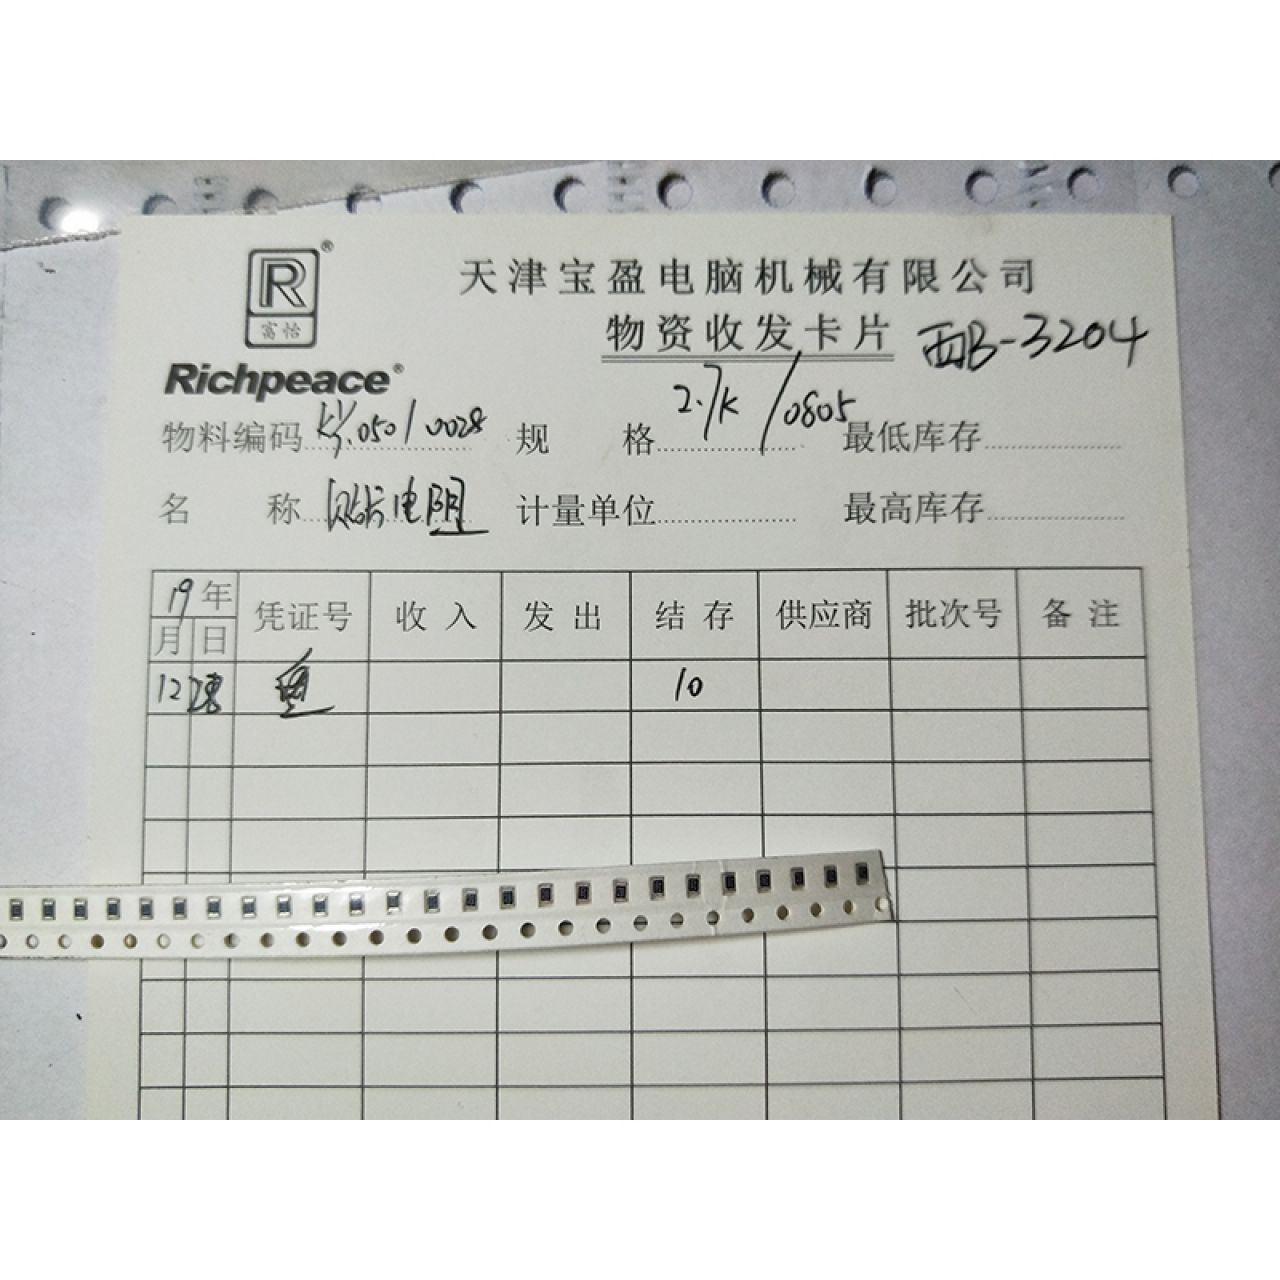 R®
富怡
Richpeace®
天津宝盈电脑机械有限公司
物资收发卡片 西B-3204
物料编码 .0501 0028 规格 2.7K/0805 最低库存
名称 贴片电阻 计量单位 最高库存
19年 凭证号 收入 发出 结存 供应商 批次号 备注
月 日
12 10